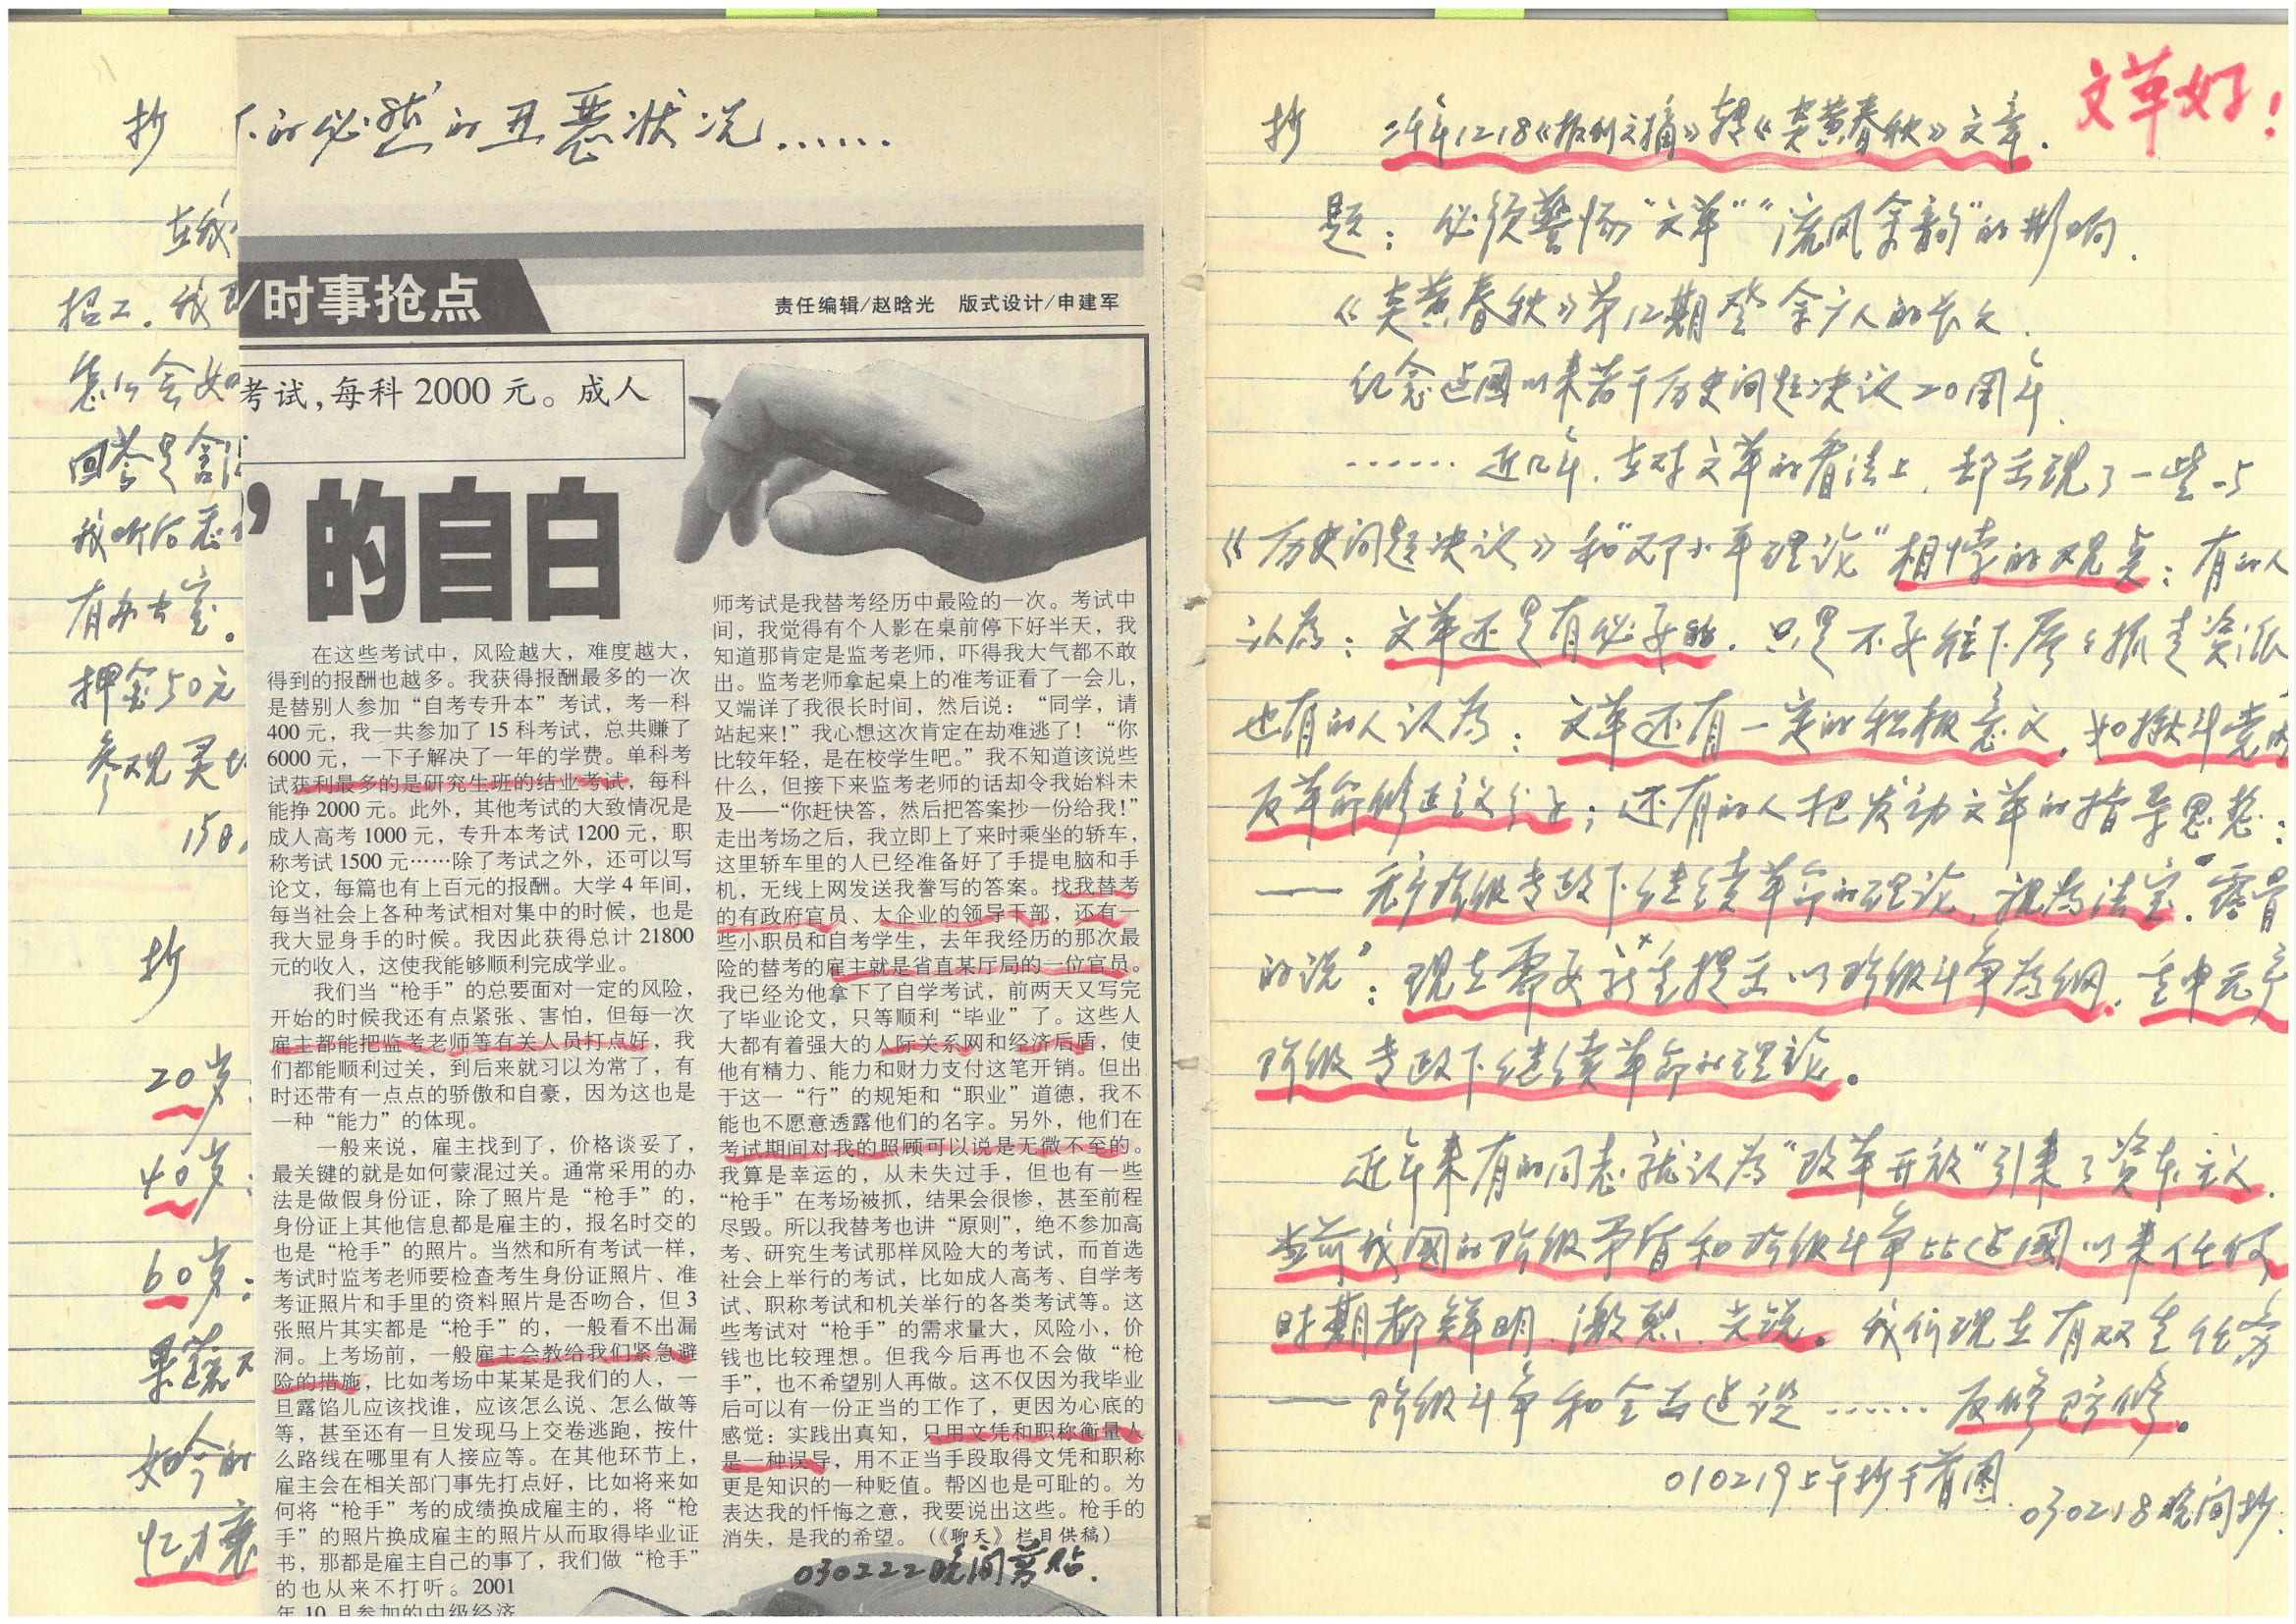 抄
在我
招工.我
怎么会如
回答是含
我听后
有办
押金50元
参观
15日
抄
20岁
40岁:
60岁:
果蔬
如今的
忆力衰
下的必然的丑恶状况……
/时事抢点
责任编辑/赵晗光 版式设计/申建军
考试,每科2000元。成人
”的自白
在这些考试中,风险越大,难度越大,
得到的报酬也越多。我获得报酬最多的一次
是替别人参加“自考专升本”考试,考一科
400元,我一共参加了15科考试,总共赚了
6000元,一下子解决了一年的学费。单科考
试获利最多的是研究生班的结业考试,每科
能挣2000元。此外,其他考试的大致情况是
成人高考1000元,专升本考试1200元,职
称考试1500元……除了考试之外,还可以写
论文,每篇也有上百元的报酬。大学4年间,
每当社会上各种考试相对集中的时候,也是
我大显身手的时候。我因此获得总计21800
元的收入,这使我能够顺利完成学业。
我们当“枪手”的总要面对一定的风险,
开始的时候我还有点紧张、害怕,但每一次
雇主都能把监考老师等有关人员打点好,我
们都能顺利过关,到后来就习以为常了,有
时还带有一点点的骄傲和自豪,因为这也是
一种“能力”的体现。
一般来说,雇主找到了,价格谈妥了,
最关键的就是如何蒙混过关。通常采用的办
法是做假身份证,除了照片是“枪手”的,
身份证上其他信息都是雇主的,报名时交的
也是“枪手”的照片。当然和所有考试一样,
考试时监考老师要检查考生身份证照片、准
考证照片和手里的资料照片是否吻合,但3
张照片其实都是“枪手”的,一般看不出漏
洞。上考场前,一般雇主会教给我们紧急避
险的措施,比如考场中某某是我们的人,一
旦露馅儿应该找谁,应该怎么说、怎么做等
等,甚至还有一旦发现马上交卷逃跑,按什
么路线在哪里有人接应等。在其他环节上,
雇主会在相关部门事先打点好,比如将来如
何将“枪手”考的成绩换成雇主的,将“枪
手”的照片换成雇主的照片从而取得毕业证
书,那都是雇主自己的事了,我们做“枪手”
的也从来不打听。2001
年10月参加的中级经济
师考试是我替考经历中最险的一次。考试中
间,我觉得有个人影在桌前停下好半天,我
知道那肯定是监考老师,吓得我大气都不敢
出。监考老师拿起桌上的准考证看了一会儿,
又端详了我很长时间,然后说:“同学,请
站起来!”我心想这次肯定在劫难逃了!“你
比较年轻,是在校学生吧。”我不知道该说些
什么,但接下来监考老师的话却令我始料未
及——“你赶快答,然后把答案抄一份给我!”
走出考场之后,我立即上了来时乘坐的轿车,
这里轿车里的人已经准备好了手提电脑和手
机,无线上网发送我誊写的答案。找我替考
的有政府官员、大企业的领导干部,还有一
些小职员和自考学生,去年我经历的那次最
险的替考的雇主就是省直某厅局的一位官员。
我已经为他拿下了自学考试,前两天又写完
了毕业论文,只等顺利“毕业”了。这些人
大都有着强大的人际关系网和经济后盾,使
他有精力、能力和财力支付这笔开销。但出
于这一“行”的规矩和“职业”道德,我不
能也不愿意透露他们的名字。另外,他们在
考试期间对我的照顾可以说是无微不至的。
我算是幸运的,从未失过手,但也有一些
“枪手”在考场被抓,结果会很惨,甚至前程
尽毁。所以我替考也讲“原则”,绝不参加高
考、研究生考试那样风险大的考试,而首选
社会上举行的考试,比如成人高考、自学考
试、职称考试和机关举行的各类考试等。这
些考试对“枪手”的需求量大,风险小,价
钱也比较理想。但我今后再也不会做“枪
手”,也不希望别人再做。这不仅因为我毕业
后可以有一份正当的工作了,更因为心底的
感觉:实践出真知,只用文凭和职称衡量人
是一种误导,用不正当手段取得文凭和职称
更是知识的一种贬值。帮凶也是可耻的。为
表达我的忏悔之意,我要说出这些。枪手的
消失,是我的希望。(《聊天》栏目供稿)
030222晚间剪贴.
文革好!
抄 二千年1218《报刊文摘》转《炎黄春秋》文章.
题:必须警惕“文革”“流风余韵”的影响.
《炎黄春秋》第12期登余广人的长文.
纪念建國以来若干历史问题决议20周年.
……近几年.在对文革的看法上,却出现了一些与
《历史问题决议》和“邓小平理论”相悖的观点:有的人
认为:文革还是有必要的.只是不要往下层层抓走资派
也有的人认为:文革还有一定的积极意义,如揪斗党内
反革命修正主义分子;还有的人把发动文革的指导思想:
——无产阶级专政下继续革命的理论,视为法宝.“露骨
的说”:现在需要新重提出以阶级斗争为纲,重申无产
阶级专政下继续革命的理论。
近年来有的同志就认为“改革开放”引来了资本主义.
当前我國的阶级矛盾和阶级斗争比建國以来任何
时期都鲜明、激烈、尖锐。我们现在有双重任务
——阶级斗争和全面建设……反修防修。
010219上午抄于省图.
030218晚间抄.